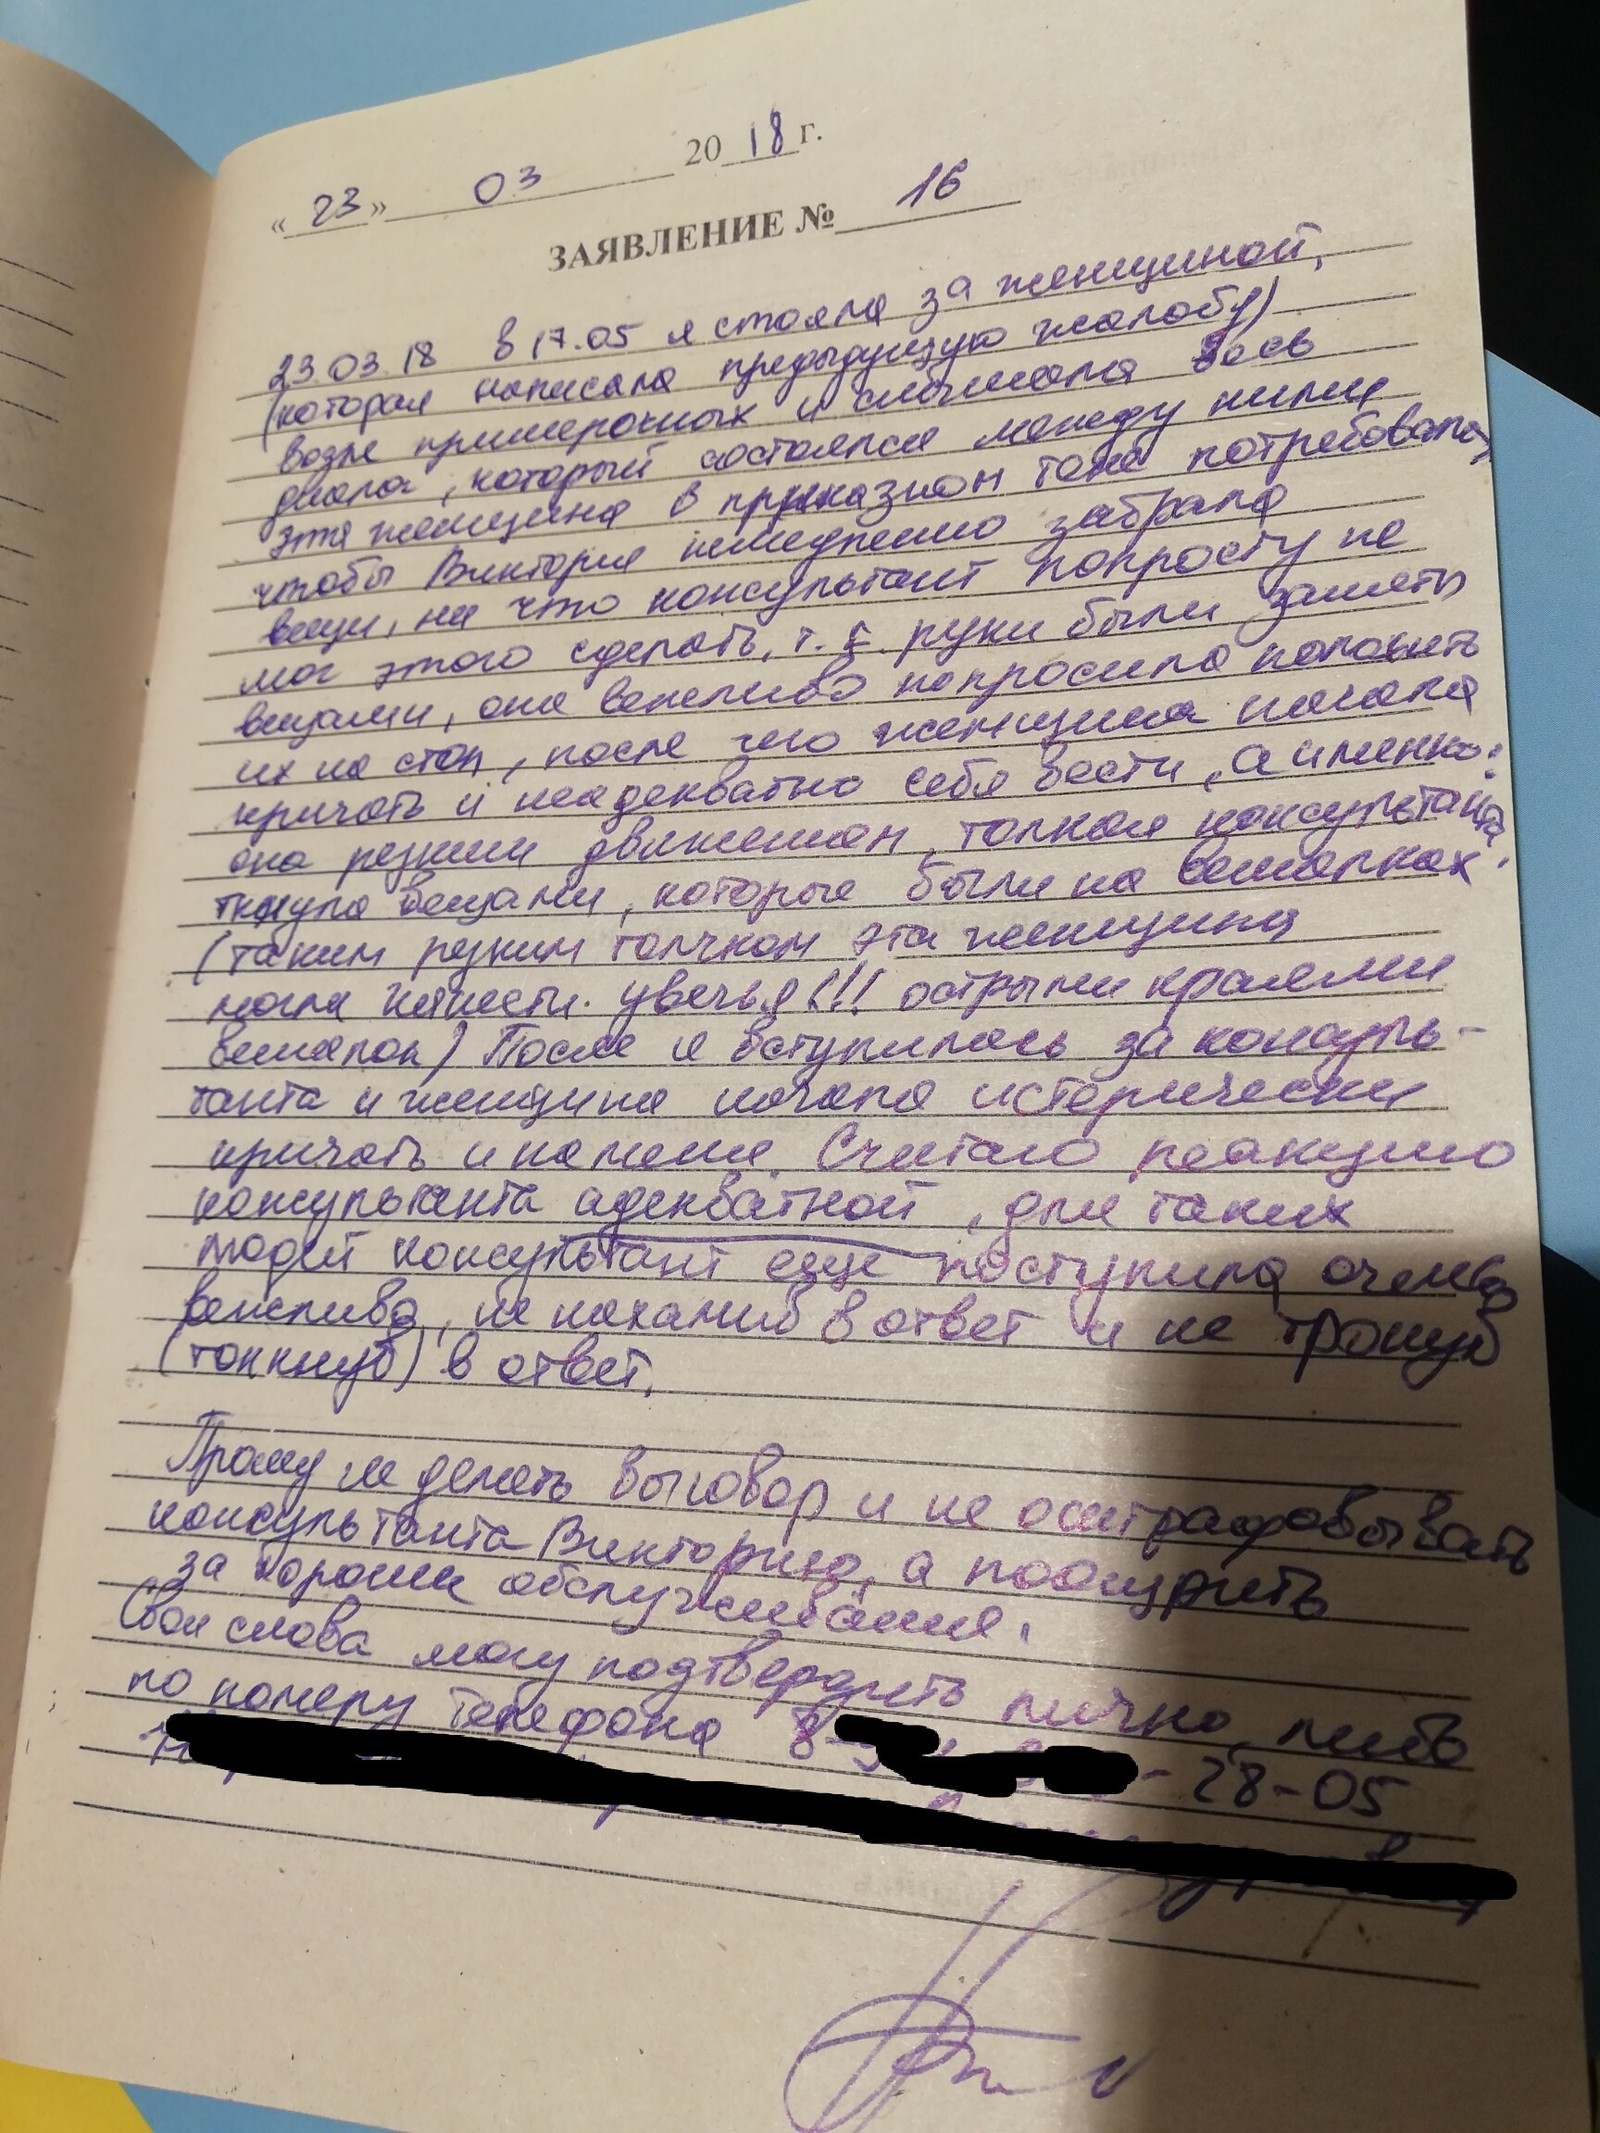 « 23 » 03 20 18 г.
ЗАЯВЛЕНИЕ № 16
23.03.18 в 17.05 я стояла за женщиной,
(которая написала предыдущую жалобу)
возле примерочных и слышала весь
диалог, который состоялся между ними
эта женщина в приказном тоне потребовала,
чтобы Виктория немедленно забрала
вещи, на что консультант попросту не
мог этого сделать, т.к. руки были заняты
вещами, она вежливо попросила положить
их на стол, после чего женщина начала
кричать и неадекватно себя вести, а именно:
она резким движением, толкая консультанта,
ткнула вещами, которые были на вешалках.
(таким резким толчком эта женщина
могла нанести увечья!!! острыми краями
вешалок) После я вступилась за консуль-
танта и женщина начала истерически
кричать и на меня. Считаю реакцию
консультанта адекватной, для таких
людей консультант еще поступила очень
вежливо, не нахамив в ответ и не тронув
(толкнув) в ответ.
Прошу не делать выговор и не оштрафовывать
консультанта Викторию, а поощрить
за хорошее обслуживание.
Свои слова могу подтвердить лично, либо
по номеру телефона 8- -28-05